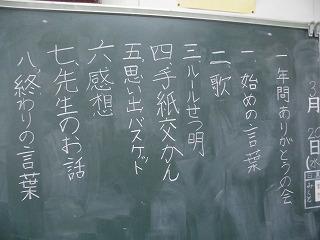 一年間ありがとうの会
一、始めの言葉
二、歌
三、ルールせつ明
四、手紙交かん
五、思い出バスケット
六、感想
七、先生のお話
八、終わりの言葉
3月
日(水)